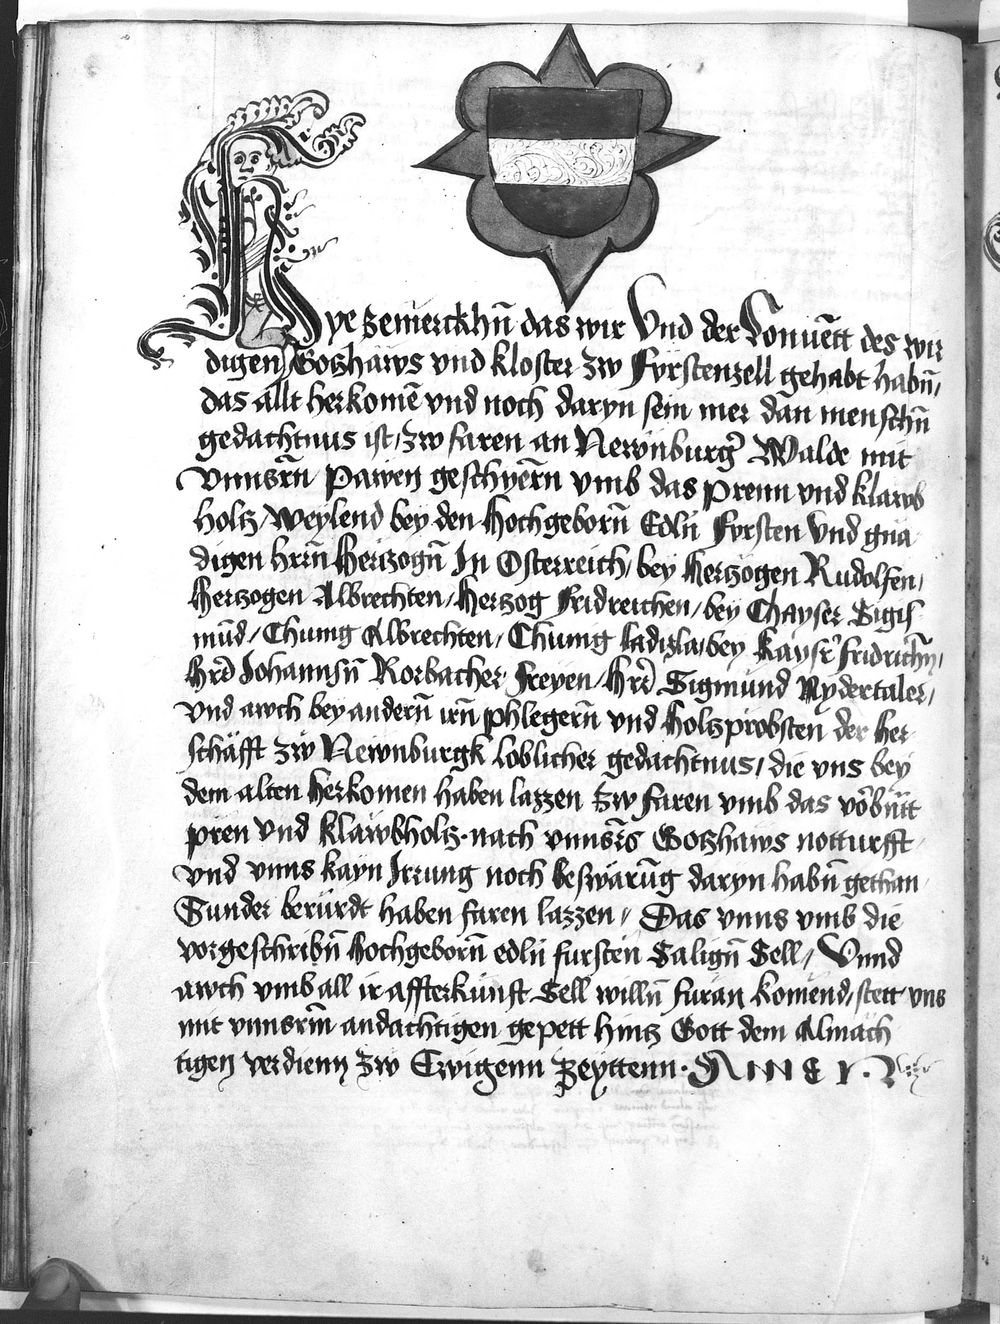 Hye zemerckhn̄ das wir Vnd der Conuētt des wir
digen Gotzhaws vnd kloster zw Fürstenzell gehabt habn̄,
das allt herkomē vnd noch daryn sein mer dan menschn̄
gedachtnus ist, zw faren an Newnburg̉ Walde mit
vnnsrn̄ pawen geschyern̄ vmb das prenn vnd klawb
holtz, weylend bey den Hochgeborn̄ Edln̄ Fürsten Vnd gna
digen hrrn̄ Hertzogn̄ In Osterreich, bey Hertzogen Rudolfen,
Hertzogen Albrechten, Hertzog Fridreichen, bey Chayser Sigis
mūd, Chunig Albrechten, Chunig Ladisla, bey Kaysr̉ Fridrichn̄,
Hrd̄ Johannsn̄ Rorbacher Freyen, Hrr̄ Sigmund Nydertaler,
vnd awch bey andern̄ irn̄ phlegern̄ vnd Holtzprobsten der her
schafft zw Newnburgk loblicher gedachtnus, die vns bey
dem alten Herkomen haben lazzen zw faren vmb das vōbn̄tt
pren vnd klawbholtz nach vnnsr̄s Gotzhaws notturfft
vnd vnns kayn Irrung noch beswärūg daryn habn̄ gethan
Sunder berürdt haben faren lazzen, Das vnns vmb die
vorgeschribn̄ Hochgeborn̄ edln̄ fursten Salign̄ Sell, Vnnd
awch vmb all ir affterkunft Sell willn̄ furan komend, stett vns
mit vnnsrm̄ andachtigen gepett hintz Gott dem Almäch
tigen verdienn zw Ewigenn Zeyttenn. AMEN.